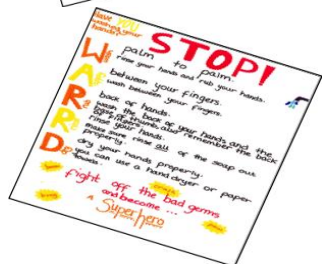 Have YOU
washed your
hands?
STOP!
Wash palm to palm.
rinse your hands and rub your hands.
between your fingers.
wash between your fingers.
back of hands.
wash the back of your hands and the
also remember the back
rinse your hands.
make sure rinse all of the soap out
properly.
Dry your hands properly.
you can use a hand dryer or paper
towels.
fight off the bad germs
and become ...
a Superhero